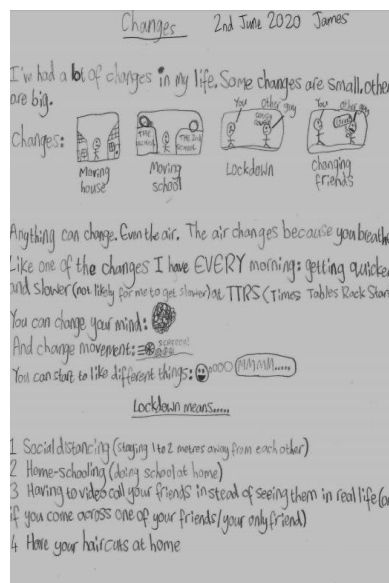 Changes 2nd June 2020 James
I've had a lot of changes in my life. Some changes are small. other
are big.
Changes:
You other guy
You other guy
THE
THE 2nd
SCHOOL
Moving
house
Moving
school
Lockdown
changing
friends
Anything can change. Even the air. The air changes because you breath
Like one of the changes I have EVERY morning: getting quicke
and slower (not likely for me to get slower) at TTRS (Times Tables Rock Star
You can change your mind:
And change movement:
You can start to like different things: MMMM.....
Lockdown means.....
1 Social distancing (staying 1 to 2 metres away from each other)
2 Home-schooling (doing school at home)
3 Having to video call your friends instead of seeing them in real life (
if you come across one of your friends/your only friend)
4 Have your haircuts at home